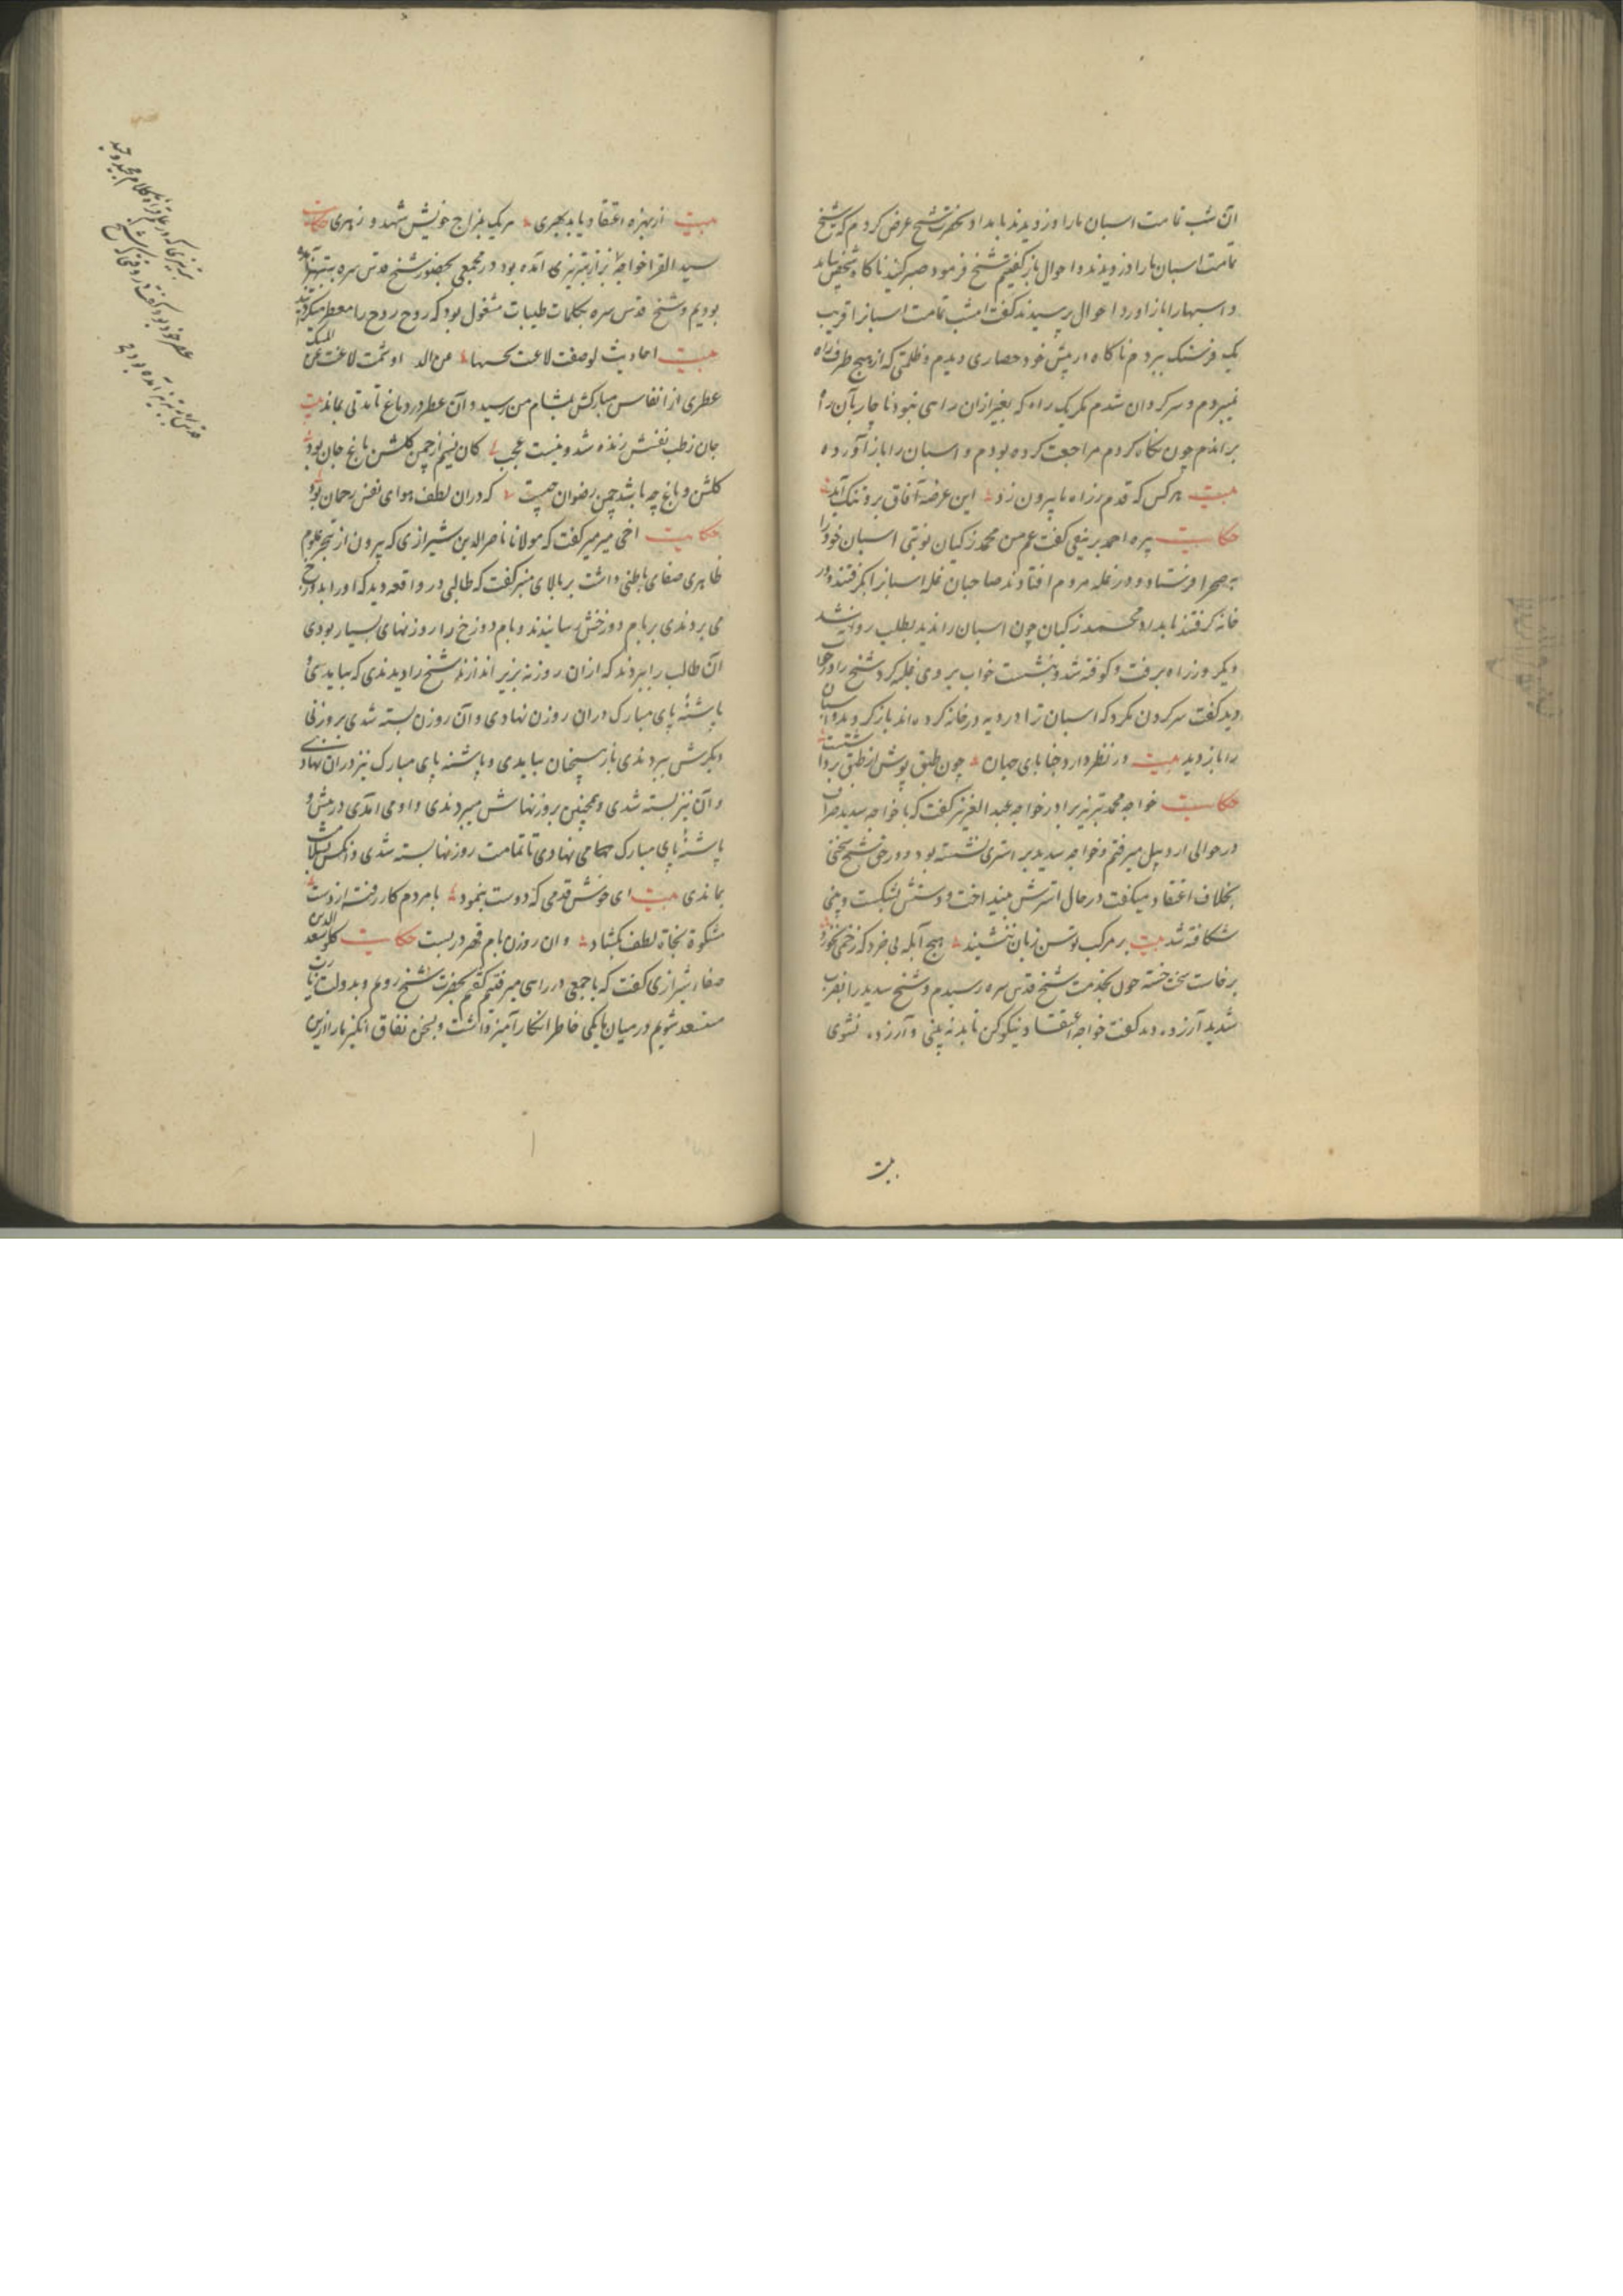 آن شب تمامت اسبان ما را دزدیدند بامداد بحضرت شیخ عرض کردم که شیخ
تمامت اسبان ما را دزدیدند و احوال باز گفتیم شیخ فرمود صبر کنید ناکاه شخصی بیامد
و اسبها را باز آورد احوال پرسیدند گفت امشب تمامت اسبان را قریب
یک فرسنک ببردم ناکاه از پیش خود حصاری دیدم و ظلمتی که از هیچ طرف راه
نمیبردم و سرکردان شدم مکر یک راه که بغیر از آن راهی نبود ناچار بآن راه
براندم چون نکاه کردم مراجعت کرده بودم و اسبان را باز آورده
بیت هر کس که قدم ز راه ما بیرون زد این عرصه آفاق برو تنک آید
حکایت پیره احمد برنیقی گفت عم من محمد زکیان نوبتی اسبان خود را
بصحرا فرستاد و در غله مردم افتادند صاحبان غله اسبان را بگرفتند و در
خانه کرفتند بامداد محمد زکیان چون اسبان را ندید بطلب روانه شد
دیگر روز راه برفت و کوفته شد و بنشست خواب بر وی غلبه کرد شیخ را در خواب
دید گفت سرکردان مکرد که اسبان ترا در دیه در خانه کرده اند باز کرد و اسبان
را باز دید بیت در نظر دارد خبایای جهان چون طبق پوش از طبق برداشت
حکایت خواجه محمد تبریزی برادر خواجه عبد العزیز گفت که با خواجه سدید صراف
در حوالی اردبیل میرفتم و خواجه سدید بر استری نشسته بود و در حق شیخ سخنی
بخلاف اعتقاد میکفت در حال استرش بینداخت و دستش بشکست و بینی
شکافته شد بیت بر مرکب توسن زبان ننشیند هیچ ابله بی خرد که زخمی نخورد
برخاست سخت خسته چون بخدمت شیخ قدس سره رسیدم و شیخ سدید را بضرب
شدید آزرده دید گفت خواجه اعتقاد نیکو کن تا بد نه بینی و آزرده نشوی
بیت
بیت از بهره اعتقاد یابد بهری هر یک بمزاج خویش شهد و زهری حکایت
سید القرا خواجه بزاز تبریزی آمده بود در مجمعی بحضور شیخ قدس سره بتبریز
بودیم و شیخ قدس سره بکلمات طیبات مشغول بود که روح روح را معطر میکردانید
بیت احادیث لوصفت
عطری از انفاس مبارکش بمشام من رسید و آن عطر در دماغ تا مدتی بماند بیت
جان ز طیب نفسش زنده شد و نیست عجب کان نسیم از چمن کلشن باغ جان بود
کلشن و باغ چه باشد چمن رضوان چیست که دران لطف هوای نفس رحمان بود
حکایت اخی میرمیر گفت که مولانا ناصر الدین شیرازی که بیرون از تبحر علوم
ظاهری صفای باطنی داشت بر بالای منبر گفت که طالبی در واقعه دید که او را بدوزخ
می بردندی بر بام دوزخش رسانیدند و بام دوزخ را روزنهای بسیار بودی
آن طالب را ببردند که از ان روزنه بزیر اندازند شیخ را دیدندی که بیامدی و
پاشنه پای مبارک دران روزن نهادی و آن روزن بسته شدی بروزنی
دیگرش ببردندی باز همچنان بیامدی و پاشنه پای مبارک نیز دران نهادی
و آن نیز بسته شدی و همچنین بروزنهاش میبردندی و او می آمدی در پیش و
پاشنه پای مبارک می نهادی تا تمامت روزنها بسته شدی و آنکس بسلامت
بماندی بیت ای خوش قدمی که دوست بنمود با مردم کار رفته از دست
مشکوة نجاة لطف بکشاد وان روزن بام قهر در بست حکایت کلو سعد الدین
صفار شیرازی گفت که با جمعی در راهی میرفتیم گفتیم بحضرت شیخ رویم و بدولت زیارت
مستعد شویم در میان ما یکی خاطر انکار آمیز داشت و بسخن نفاق انکیز ما را ازین